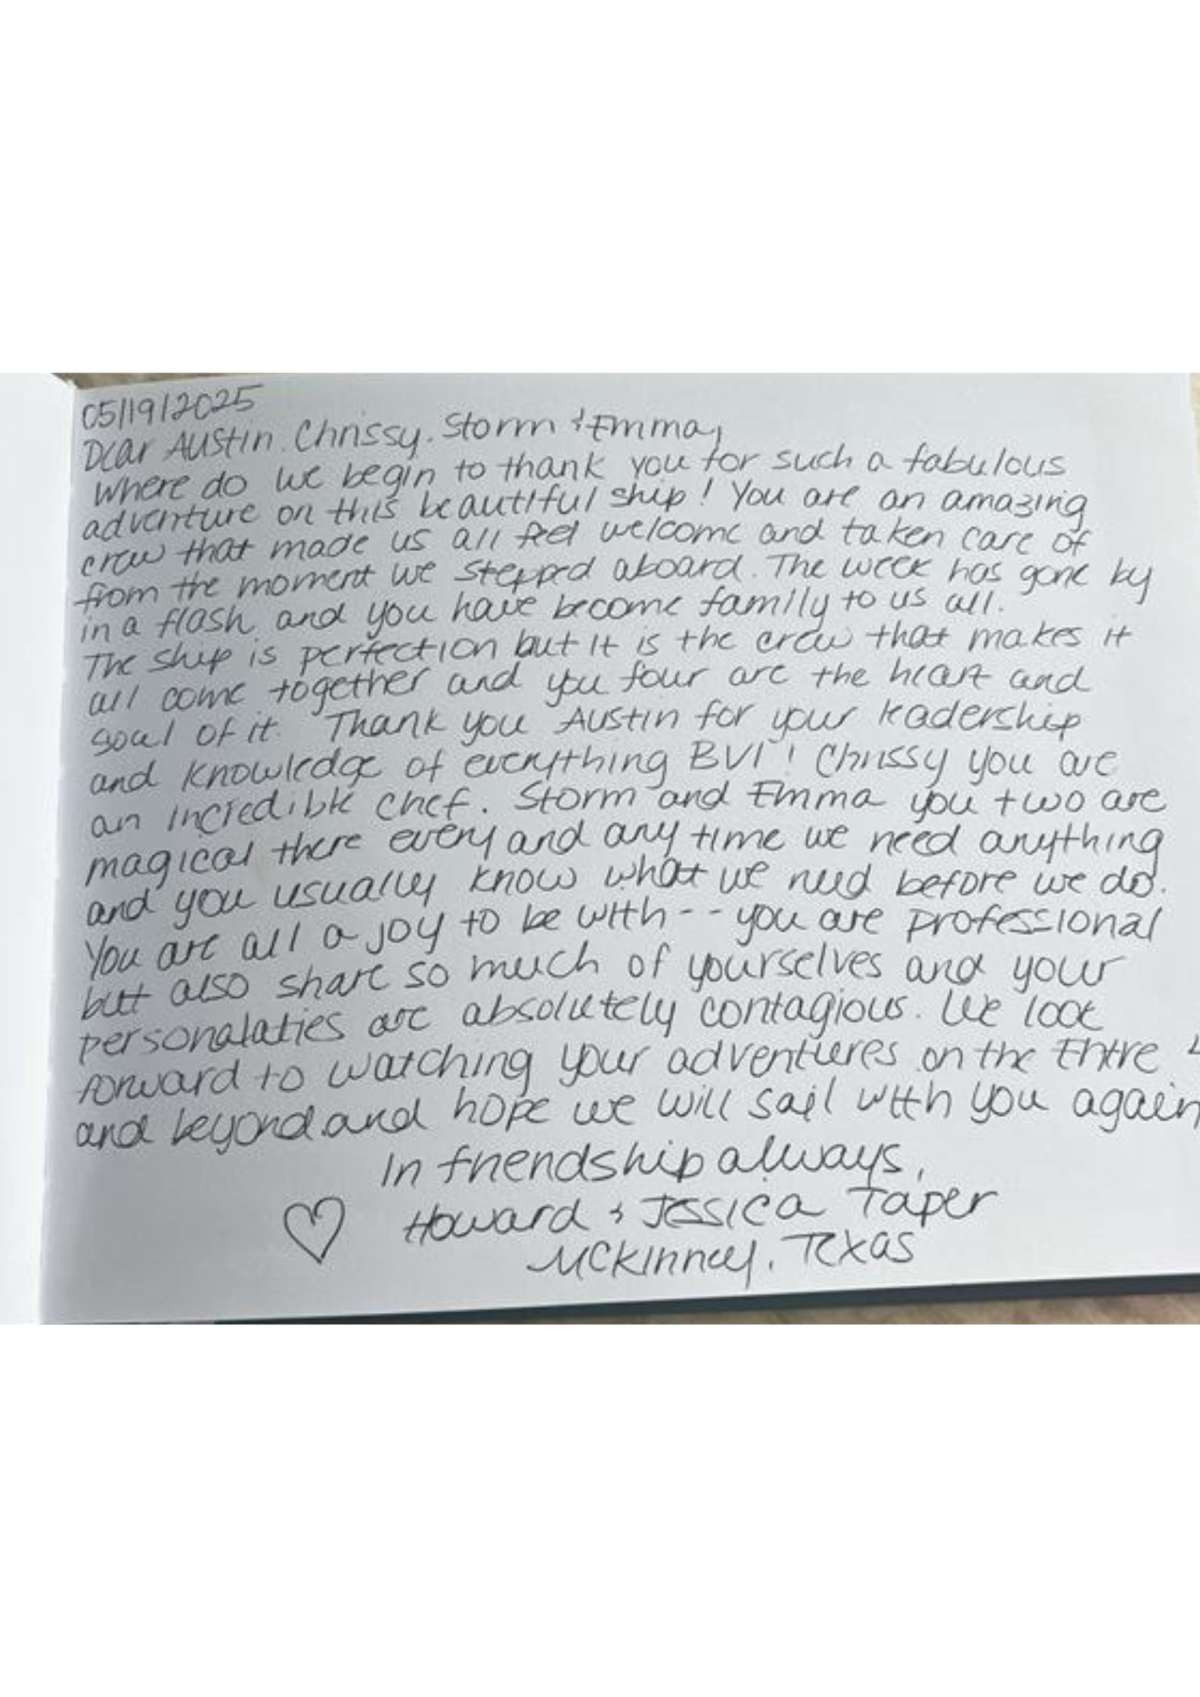 05/19/2025
Dear Austin, Chrissy, Storm & Emma,
Where do we begin to thank you for such a fabulous
adventure on this beautiful ship! You are an amazing
crew that made us all feel welcome and taken care of
from the moment we stepped aboard. The week has gone by
in a flash and you have become family to us all.
The ship is perfection but it is the crew that makes it
all come together and you four are the heart and
soul of it. Thank you Austin for your leadership
and knowledge of everything BVI! Chrissy you are
an incredible chef. Storm and Emma you two are
magical there every and any time we need anything
and you usually know what we need before we do.
You are all a joy to be with -- you are professional
but also share so much of yourselves and your
personalaties are absolutely contagious. We look
forward to watching your adventures on the Entre
and beyond and hope we will sail with you again
In friendship always,
♡ Howard & Jessica Taper
McKinney, Texas